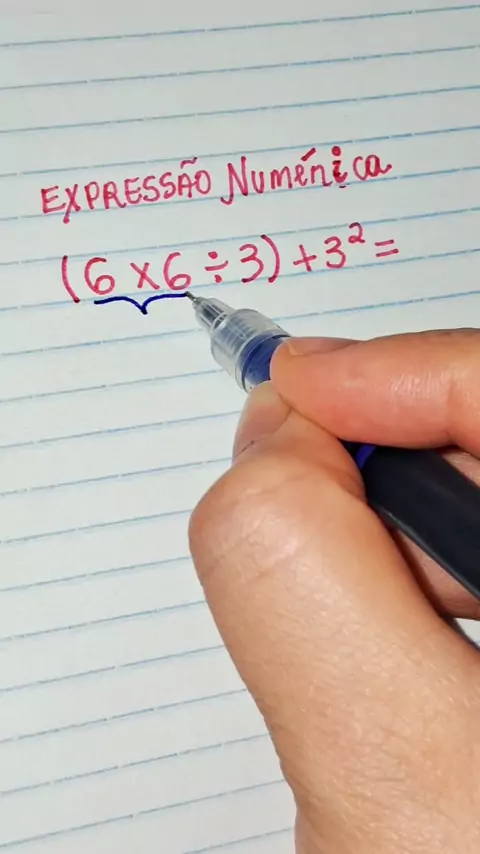 EXPRESSÃO Numérica
(6 x 6 ÷ 3) + 3² =